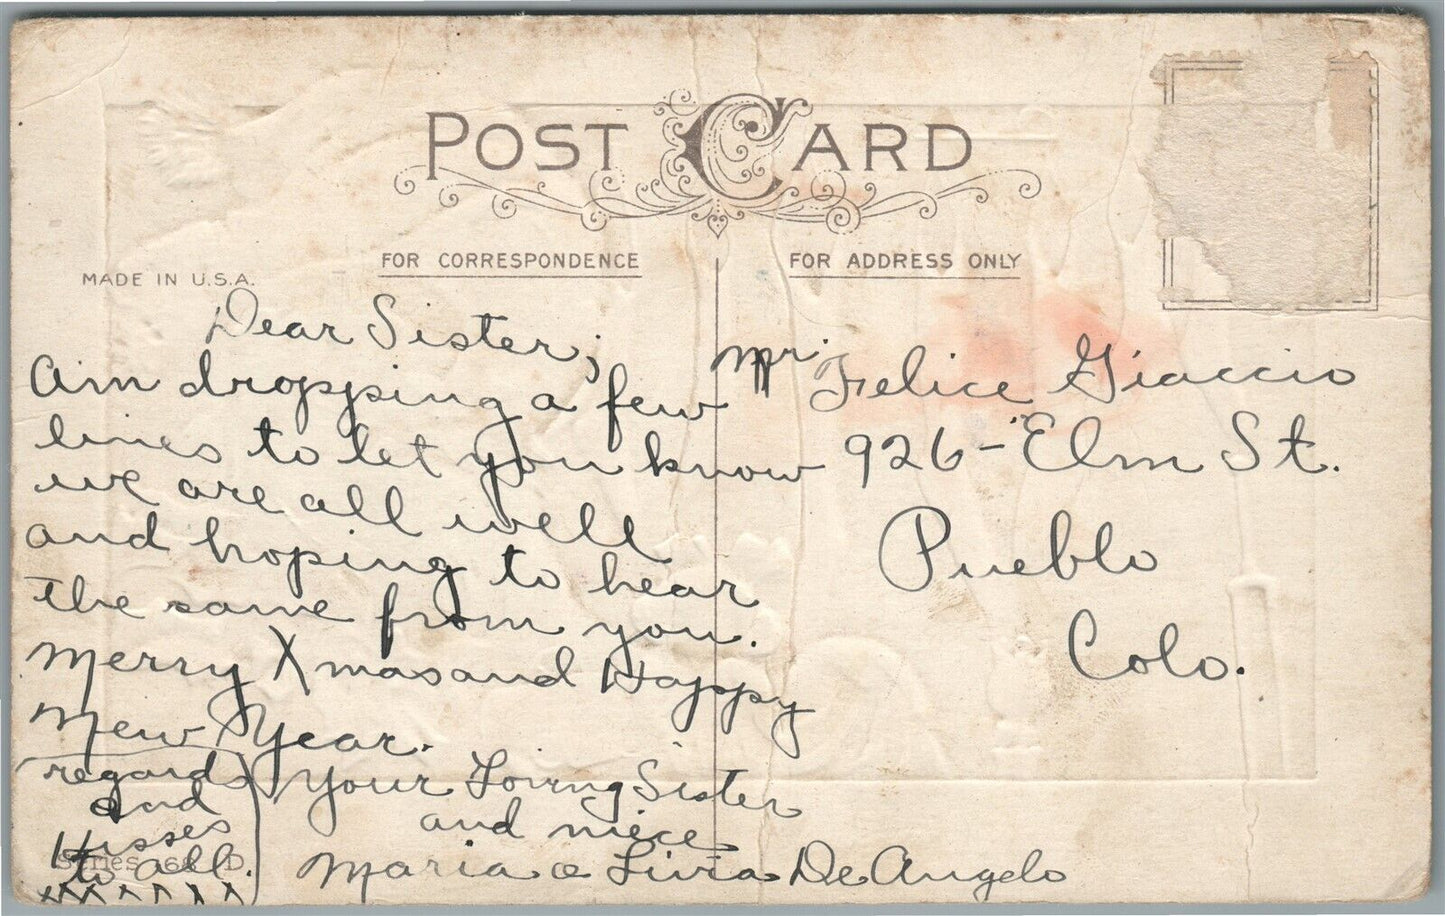 POST CARD
FOR CORRESPONDENCE
FOR ADDRESS ONLY
MADE IN U.S.A.
Dear Sister;
Am dropping a few
lines to let you know
we are all well
and hoping to hear
the same from you.
Merry Xmas and Happy
New Year.
Your Loving Sister
and niece
Maria & Livia De Angelo
regards
and
Kisses
to all.
XXXXXXX
Mr. Felice Giaccio
926 - Elm St.
Pueblo
Colo.
Series 168 D.